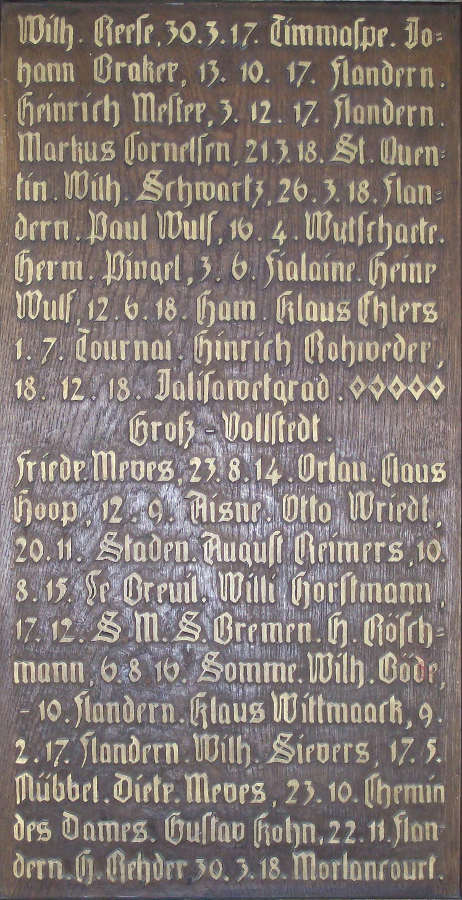 Wilh. Reese, 30.3.17. Timmaspe. Jo=
hann Braker, 13. 10. 17. Flandern.
Heinrich Mester, 3. 12. 17. Flandern.
Markus Cornelsen, 21.3.18. St. Quen=
tin. Wilh. Schwartz, 26.3.18. Flan=
dern. Paul Wulf, 16. 4. Wutschaete.
Herm. Pingel, 3. 6. Fialaine. Heinr
Wulf, 12.6.18. Ham. Klaus Ehlers
1. 7. Tournai. Hinrich Rohweder,
18. 12. 18. Jalisawetgrad.
Groß-Vollstedt.
Friedr. Meves, 23.8.14. Orlau. Claus
Hoop, 12. 9. Aisne. Otto Wriedt,
20.11. Staden. August Reimers, 10.
8.15. Le Breuil. Willi Horstmann,
17.12. S. M. S. Bremen. H. Rösch=
mann, 6.8.16. Somme. Wilh. Böde,
-10. Flandern. Klaus Wittmaack, 9.
2.17. Flandern. Wilh. Sievers, 17.5.
Nübbel. Dietr. Meves, 23.10. Chemin
des Dames. Gustav Kohn, 22.11. Flan=
dern. H. Rehder 30.3.18. Morlancourt.